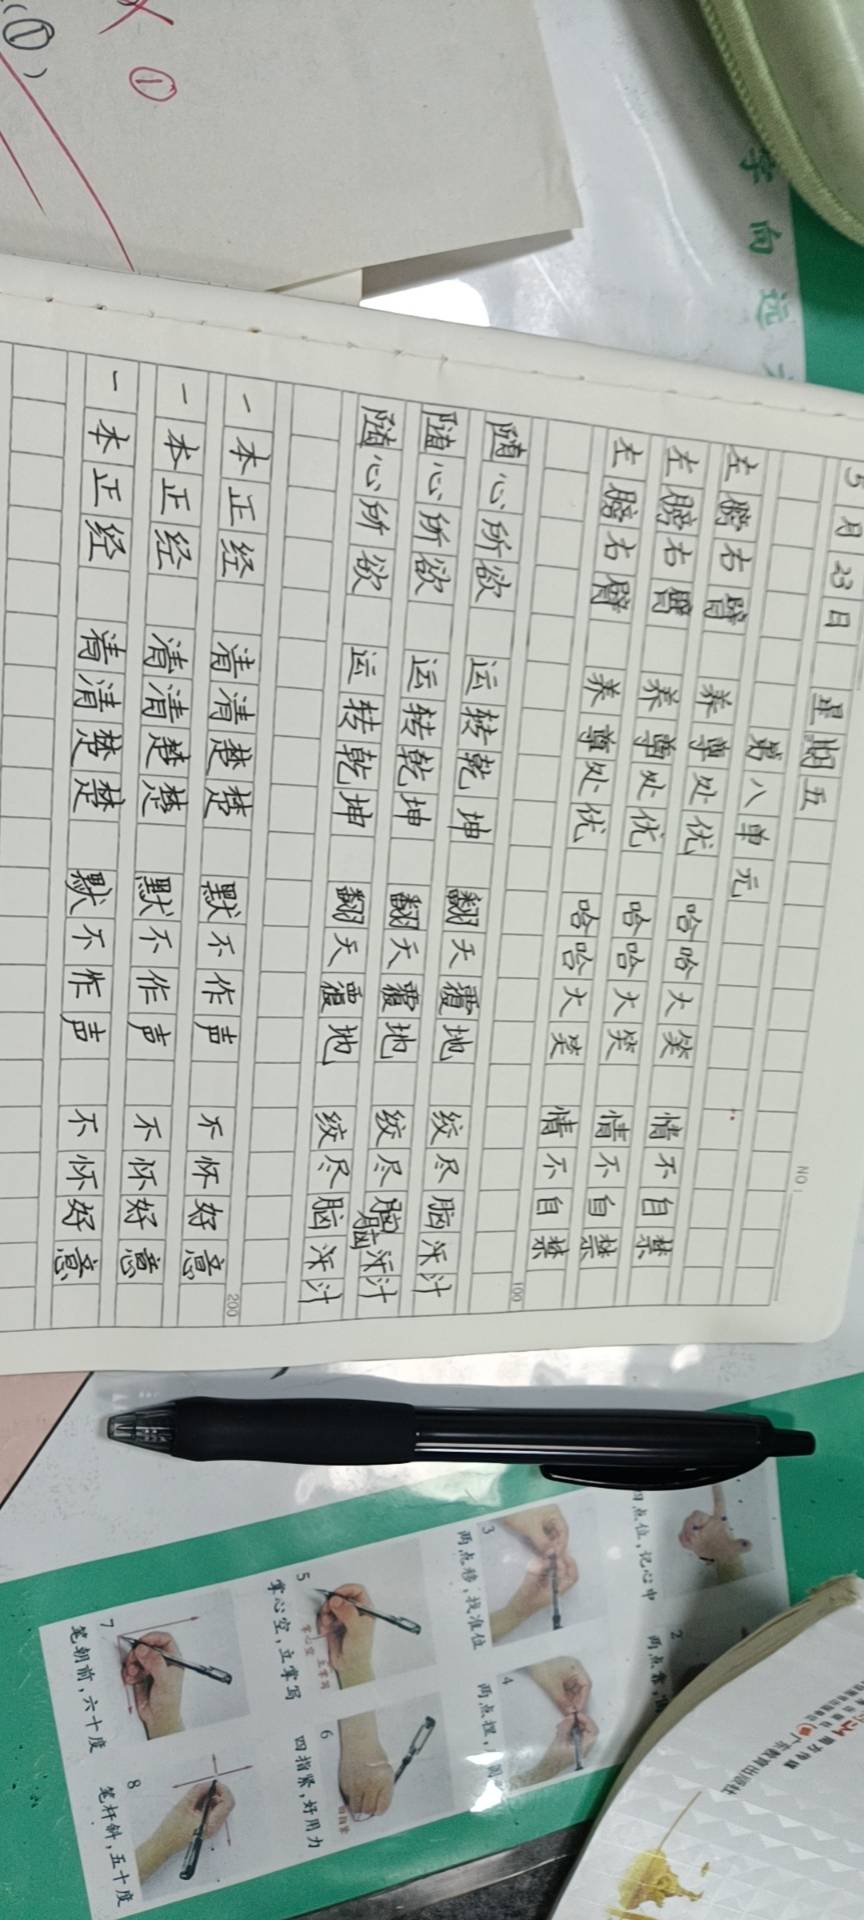 5月23日 星期五
NO:
第八单元
左膀右臂 养尊处优 哈哈大笑 情不自禁
左膀右臂 养尊处优 哈哈大笑 情不自禁
左膀右臂 养尊处优 哈哈大笑 情不自禁
100
随心所欲 运转乾坤 翻天覆地 绞尽脑汁
随心所欲 运转乾坤 翻天覆地 绞尽脑汁
随心所欲 运转乾坤 翻天覆地 绞尽脑汁
200
一本正经 清清楚楚 默不作声 不怀好意
一本正经 清清楚楚 默不作声 不怀好意
一本正经 清清楚楚 默不作声 不怀好意
①
①
字向远
四点位,记心中
2 两点靠
3 两点移,找准位
4 两点捏
5 掌心空,立掌写
掌心空 立掌写
6 四指紧,好用力
7 笔朝前,六十度
8 笔杆斜,五十度
南方传媒
广东教育出版社